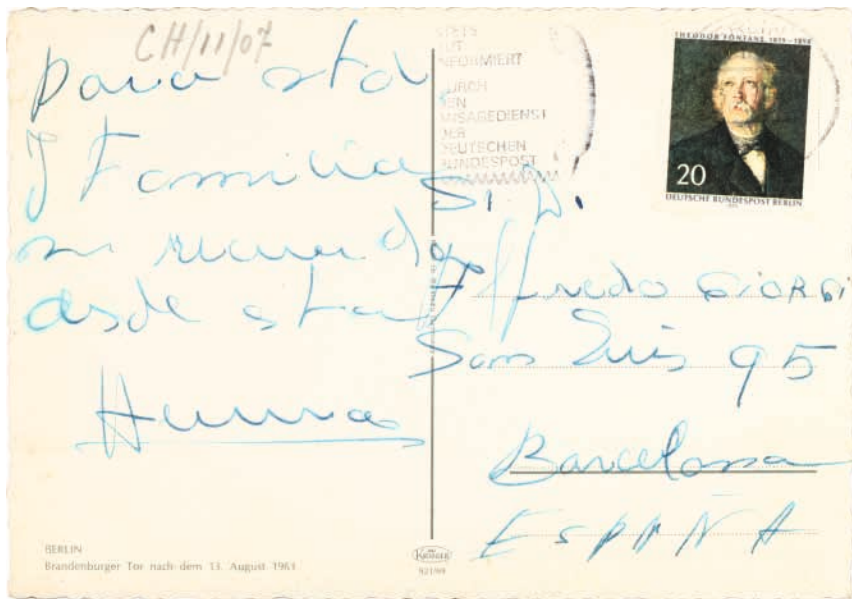 CH/11/07
para std
y Familia
un recuerdo
desde esta
STETS
GUT
INFORMIERT
DURCH
DEN
ANSAGEDIENST
DER
DEUTSCHEN
BUNDESPOST
THEODOR FONTANE 1819-1898
20
DEUTSCHE BUNDESPOST BERLIN
Sr. D.
Alfredo GIORGI
San Luis 95
Barcelona
ESPAÑA
BERLIN
Brandenburger Tor nach dem 13. August 1961
KRÜGER